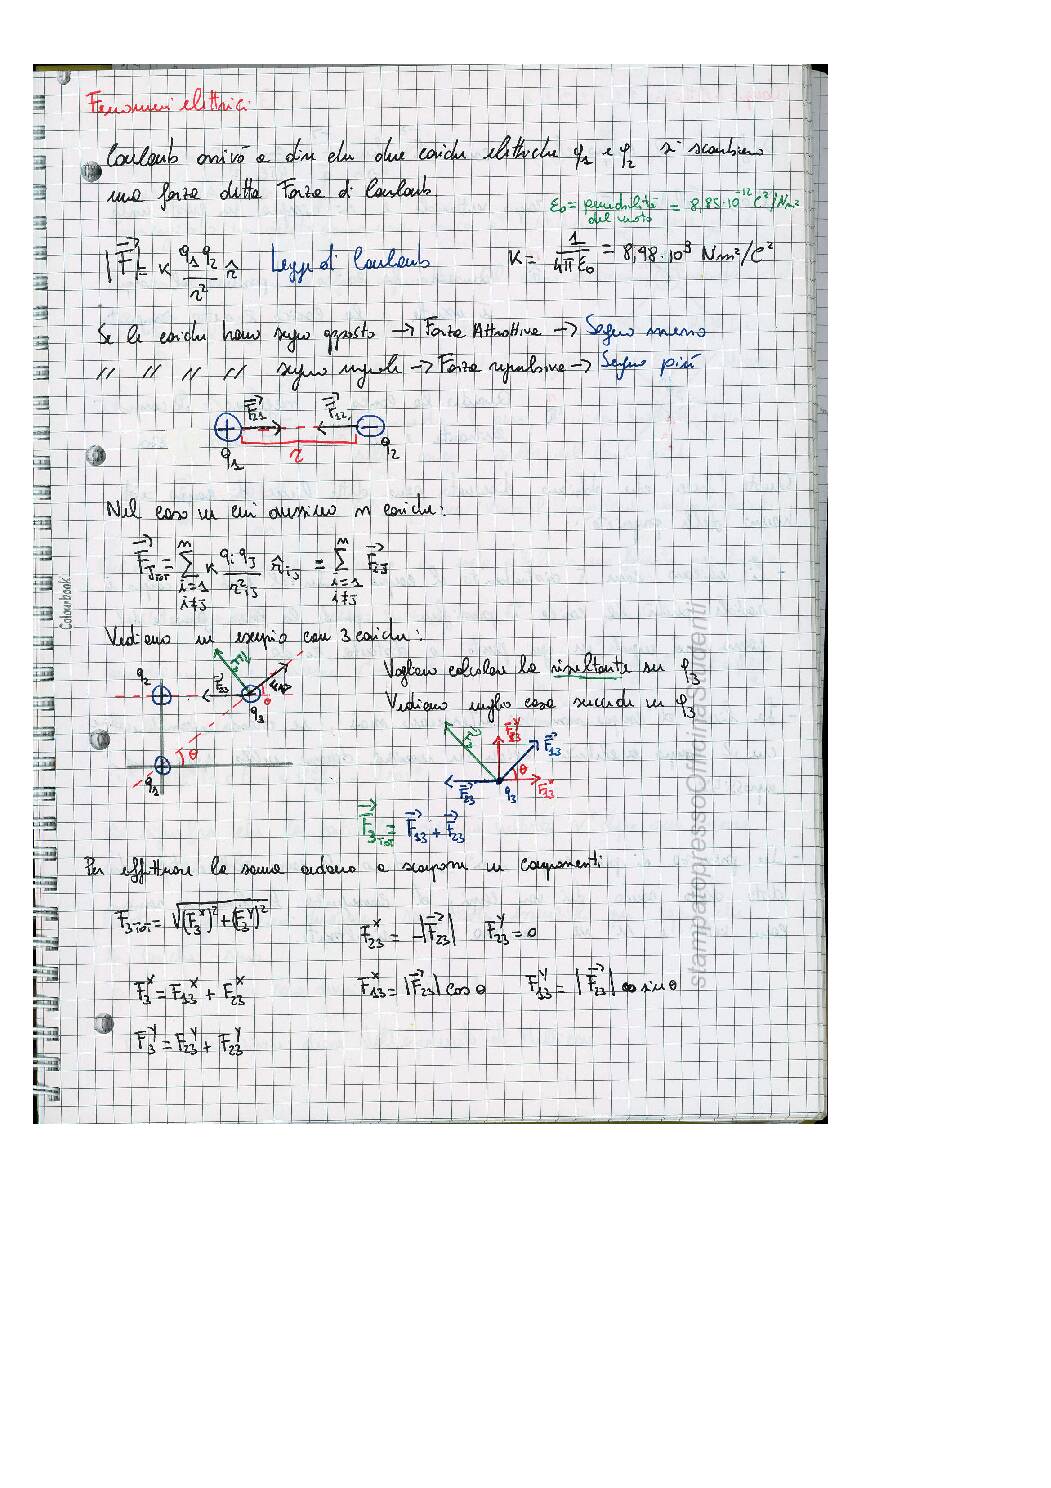 Fenomeni elettrici
Coulomb arrivò a dire che due cariche elettriche q₁ e q₂ si scambiano
una forza detta Forza di Coulomb
ε₀ = permettività del vuoto = 8,85·10⁻¹² C²/Nm²
|F⃗| = K q₁q₂/r² r̂ Legge di Coulomb K = 1/4πε₀ = 8,98·10⁹ Nm²/C²
Se le cariche hanno segno opposto → Forza Attrattiva → Segno meno
// // // // segno uguale → Forza repulsiva → Segno più
F⃗₂₁ F⃗₁₂
+ −
q₁ r q₂
Nel caso in cui avessimo n cariche:
F⃗ⱼTOT = Σ (i=1, i≠j → n) K qᵢqⱼ/r²ᵢⱼ r̂ᵢⱼ = Σ (i=1, i≠j → n) F⃗ᵢⱼ
Colourbook
Vediamo un esempio con 3 cariche:
q₂ F⃗₃ F⃗₂₃ F⃗₁₃ θ q₃
θ
q₁
Vogliamo calcolare la risultante su q₃
Vediamo meglio cosa succede in q₃
F⃗₃ F₁₃ʸ F⃗₁₃ θ
F⃗₂₃ q₃ F₁₃ˣ
F⃗₃TOT = F⃗₁₃ + F⃗₂₃
Per effettuare la somma andiamo a scomporre in componenti
F₃TOT = √(F₃ˣ)² + (F₃ʸ)²
F₂₃ˣ = −|F⃗₂₃| F₂₃ʸ = 0
F₃ˣ = F₁₃ˣ + F₂₃ˣ
F₁₃ˣ = |F⃗₂₃| cos θ F₁₃ʸ = |F⃗₂₃| sin θ
F₃ʸ = F₂₃ʸ + F₂₃ʸ
stampatopressoOfficinaStudenti